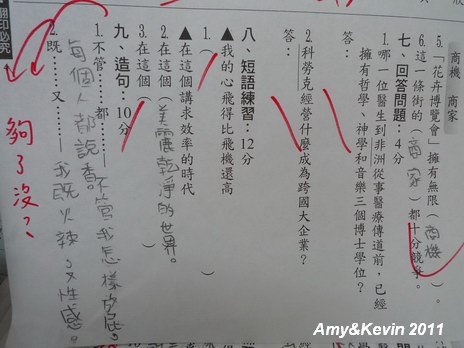 翻印必究
商機　商家
5.「花卉博覽會」擁有無限（商機）。
6.這一條街的（商家）都十分競爭。
七、回答問題：4分
1.哪一位醫生到非洲從事醫療傳道前，已經
擁有哲學、神學和音樂三個博士學位？
答：
2.科勞克經營什麼成為跨國大企業？
答：
八、短語練習：12分
▲我的心飛得比飛機還高
1.（　）
▲在這個講求效率的時代
2.在這個（美麗乾淨的世界。
3.在這個（　）
九、造句：10分
1.不管……都……不管我怎樣放屁。
每個人都說香。
2.既……又……我既火辣又性感。
夠了沒？
Amy&Kevin 2011